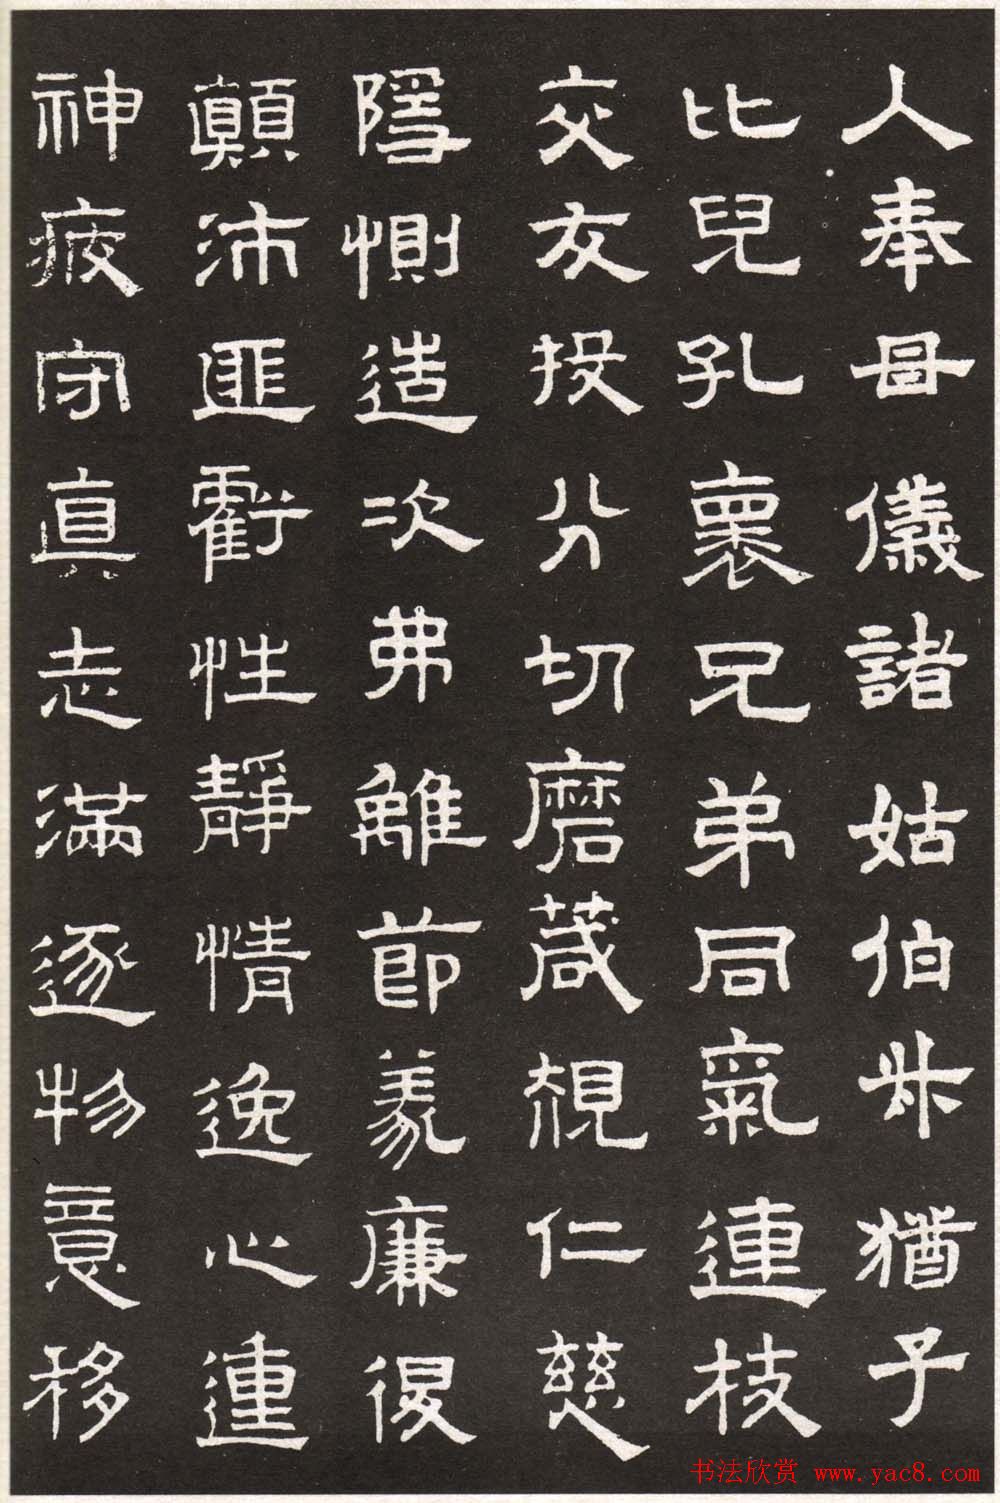 人奉母儀諸姑伯叔猶子
比兒孔褱兄弟同氣連枝
交友投分切磨葴規仁慈
隱惻造次弗離節義廉退
顛沛匪虧性靜情逸心動
神疲守真志滿逐物意移
书法欣赏 www.yac8.com